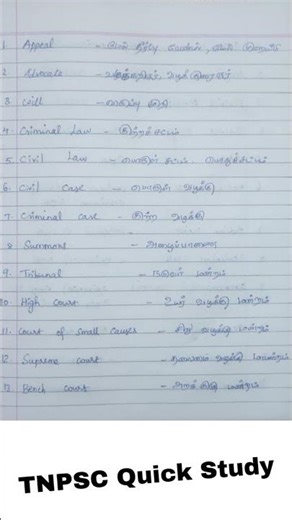 1 Appeal - மேல் தீர்ப்பு வேண்டல், மேல் முறையீடு
2 Advocate - வழக்கறிஞர், வழக்குரைஞர்
3 Will -
4 Criminal Law - குற்றச்சட்டம்
5 Civil Law - பொருள் சட்டம்,
6. Civil Case - பொருள் வழக்கு
7 Criminal case - குற்ற வழக்கு
8 Summons - அழைப்பாணை
9. Tribunal - நடுவர் மன்றம்
10. High Court - உயர் வழக்கு மன்றம்
11. Court of Small Causes - சிறு வழக்கு மன்றம்
12. Supreme court - தலைமை வழக்கு மன்றம்
13 Bench court - மன்றம்
TNPSC Quick Study